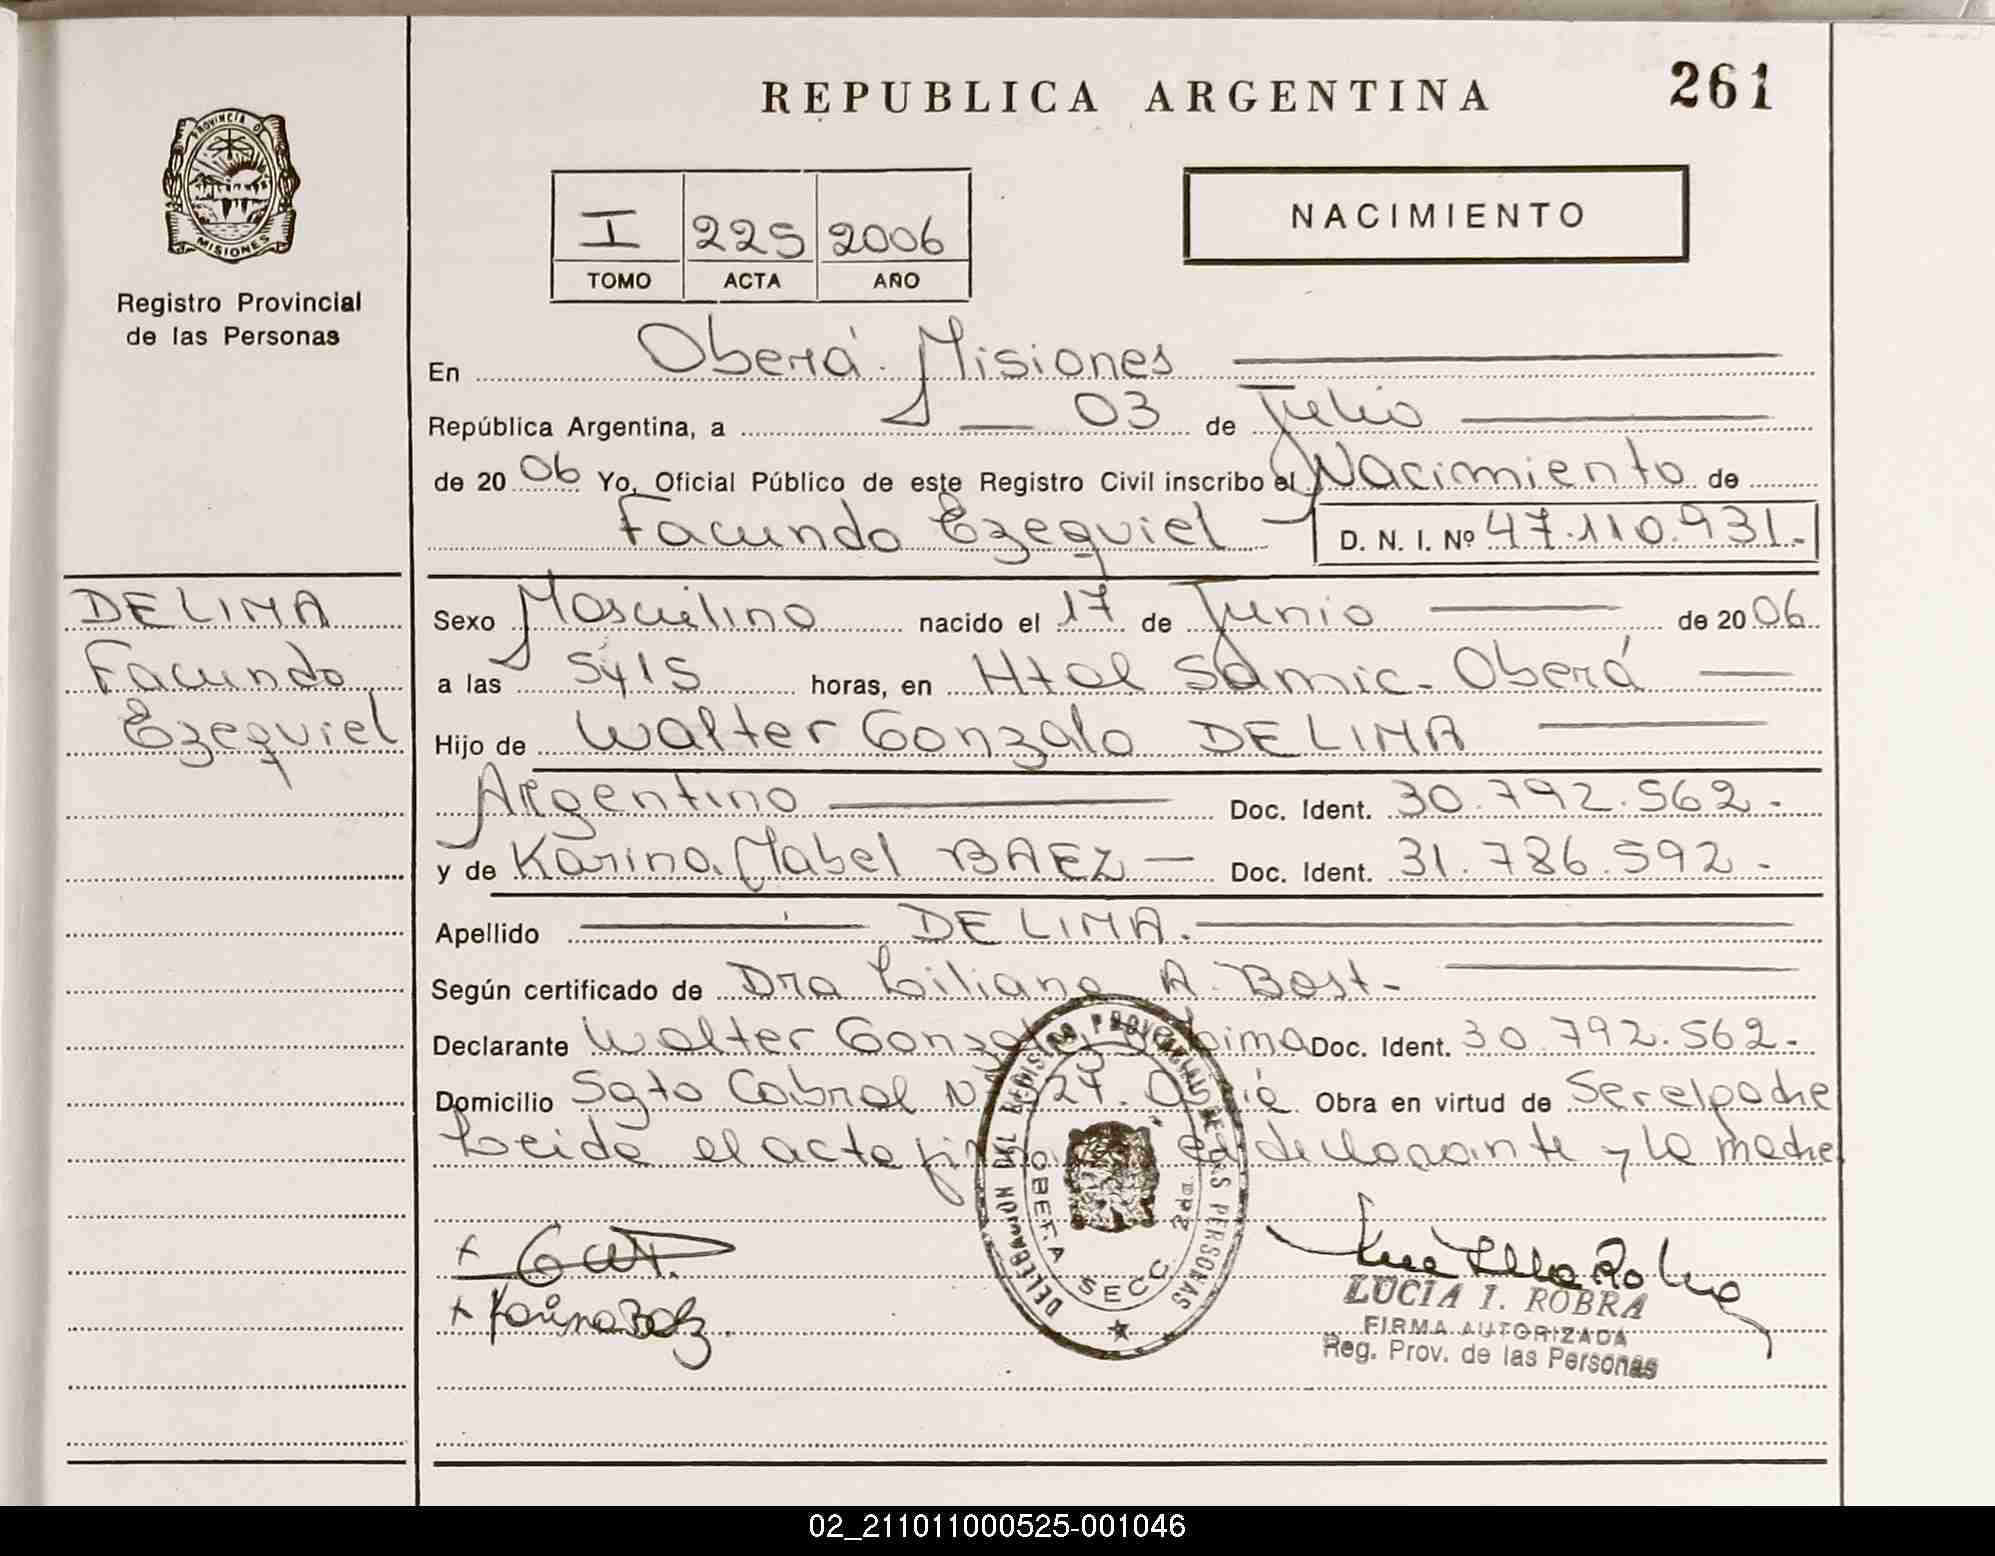 REPUBLICA ARGENTINA
261
PROVINCIA DE
MISIONES
Registro Provincial
de las Personas
I 225 2006
TOMO ACTA AÑO
NACIMIENTO
En Oberá. Misiones
República Argentina, a 03 de Julio
de 20 06 Yo, Oficial Público de este Registro Civil inscribo el Nacimiento de
Facundo Ezequiel D. N. I. Nº 47.110.931.-
DE LIMA
Facundo
Ezequiel
Sexo Masculino nacido el 17 de Junio de 20 06
a las 5y15 horas, en Htal Samic - Oberá
Hijo de Walter Gonzalo DE LIMA
Argentino Doc. Ident. 30.792.562.-
y de Karina Mabel BAEZ Doc. Ident. 31.786.592.-
Apellido DE LIMA.
Según certificado de Dra Liliana A. Bost-
Declarante Walter Gonzalo De Lima Doc. Ident. 30.792.562.-
Domicilio Sgto Cabral Oberá Obra en virtud de Ser el padre
Leida el acta el declarante y la madre
DELEGACION DEL REGISTRO PROVINCIAL DE LAS PERSONAS
OBERA SECC. 2da.
Karina Baez.
LUCIA I. ROBRA
FIRMA AUTORIZADA
Reg. Prov. de las Personas
02_211011000525-001046